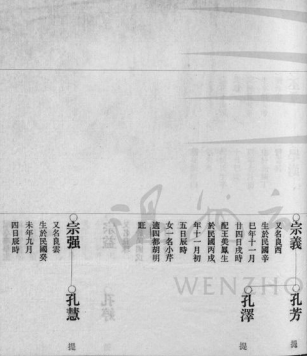 宗義
又名良酉
生於民國辛
巳年十一月
廿四日戌時
配王美鳳生
於民國丙戌
年十一月初
五日辰時
女一名小芹
適四都胡明
旺
孔芳
提
孔澤
提
宗强
又名良雲
生於民國癸
未年九月
四日辰時
孔慧
提
WENZHO